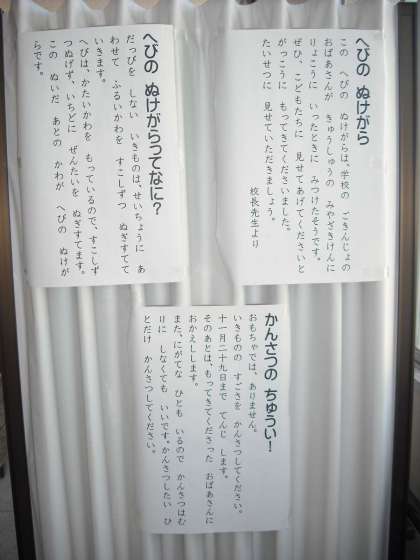 へびの ぬけがら
この へびの ぬけがらは、学校の ごきんじょの
おばあさんが きゅうしゅうの みやざきけんに
りょこうに いったときに みつけたそうです。
ぜひ、こどもたちに 見せてあげてくださいと
がっこうに もってきてくださいました。
たいせつに 見せていただきましょう。
校長先生より
へびの ぬけがらってなに?
だっぴを しない いきものは、せいちょうに あ
わせて ふるいかわを すこしずつ ぬぎすてて
いきます。
へびは、かたいかわを もっているので、すこしず
つぬげず、いちどに ぜんたいを ぬぎすてます。
この ぬいだ あとの かわが へびの ぬけが
らです。
かんさつの ちゅうい!
おもちゃでは、ありません。
いきものの すごさを かんさつしてください。
十一月二十九日まで てんじ します。
そのあとは、もってきてくださった おばあさんに
おかえしします。
また、にがてな ひとも いるので かんさつはむ
りに しなくても いいです。かんさつしたい ひ
とだけ かんさつしてください。